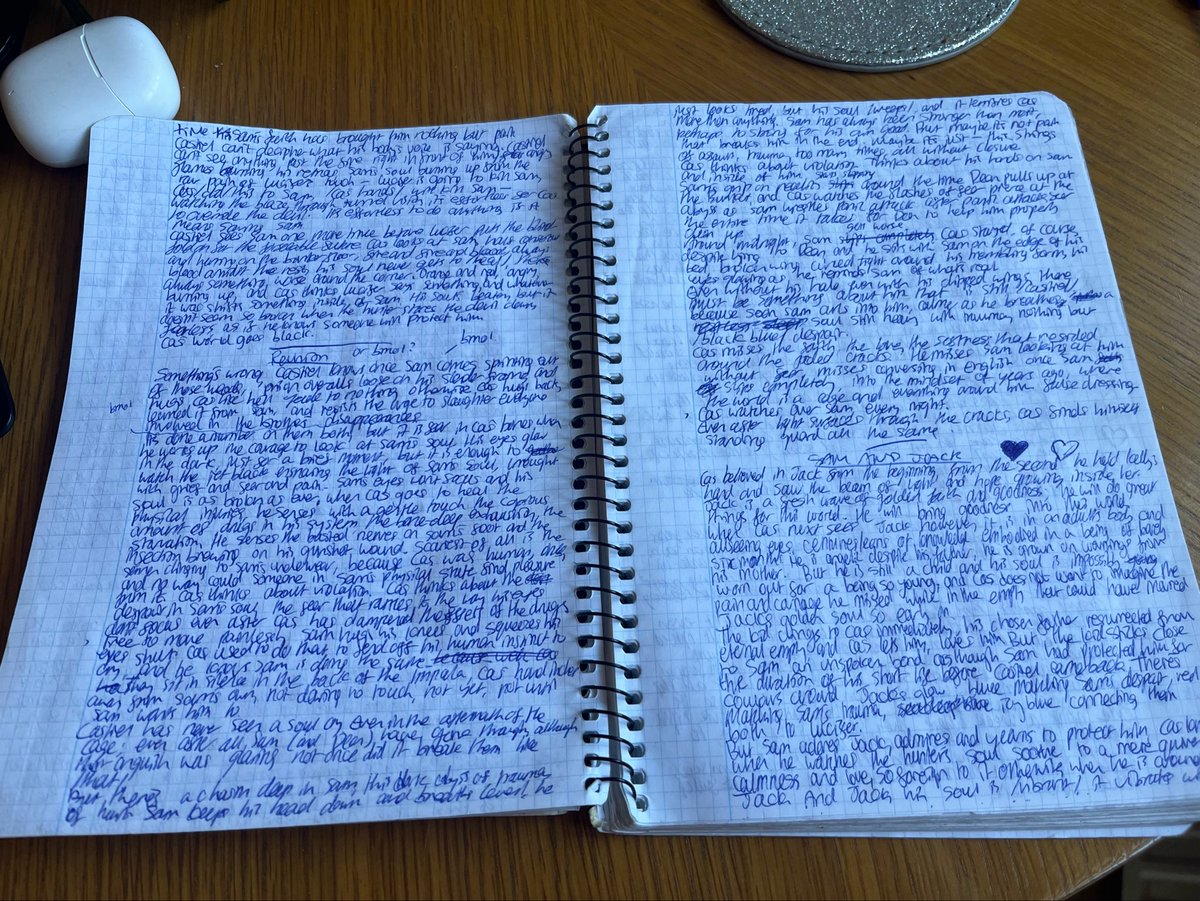 time Sam's faith has brought him nothing but pain
Castiel can't decipher what his body's voice is saying, Castiel
can't see anything past the fire right in front of him,
flames burning his remar Sam's soul burning up from the
raw pain of Lucifer's touch — Lucifer is going to kill Sam,
Cas did this to Sam, Cas' hands will kill Sam —
watching the blaze through tunnel vision, it's effortless for Cas
to override the devil. It's effortless to do anything is it
means saving Sam
Castiel sees Sam one more time before Lucifer puts the
down for the Cas looks at Sam, half conscious
and hurting on the bunker floor, blood always
blood amidst the rest, his soul never gets to heal, there's
always something worse around the corner. Orange and red, angry,
burning up, and Cas thinks Lucifer says something and whatever
it was shifts something inside of Sam. His soul's beaten, but it
doesn't seem so broken when the hunter stares the devil down,
fearless as if he knows someone will protect him.
Cas world goes black.
Reunion or bmol? bmol
Something's wrong, Castiel knows once Sam comes sprinting out
of those woods, prison overalls loose on his slender frame and
hugs Cas like he'll fade to nothing otherwise. Cas hugs back,
bmol learned it from Sam, and resists the urge to slaughter everyone
involved in the brothers disappearances
It's done a number on them both but it's fear in Cas bones when
he works up the courage to look at Sam's soul. His eyes glow
in the dark just for a brief moment, but it is enough to
watch the jet black the light of Sam's soul, wrought
with grief and fear and pain. Sam's eyes won't focus and his
soul is as broken as ever, when Cas goes to heal the
physical injuries, he senses with a gentle touch the copious
amount of drugs in his system, the bone-deep exhaustion, the
starvation. He senses the busted nerves on Sam's foot and the
infection brewing on his gunshot wound. Scariest of all is the
semen clinging to Sam's underwear, because Cas was human, once,
and no way could someone in Sam's physical state find pleasure
from it. Cas thinks about violation. Cas thinks about the
despair in Sam's soul, the fear that rattles it, the way his eyes
don't focus even after Cas has dampened the effect of the drugs
free to move painlessly, Sam hugs his knees and squeezes his
eyes shut. Cas used to do that to fend off his human instinct to
cry, and he knows Sam is doing the same
sit in silence in the back of the Impala, Cas' hand inches
away from Sam's own, not daring to touch, not yet, not until
Sam wants him to
Castiel has never seen a soul cry. Even in the aftermath of the
cage. even after all Sam (and Dean) have gone through, although
their anguish was glaring not once did it break them like
that.
But there's a chasm deep in Sam, this dark abyss of trauma,
of hurt. Sam keeps his head down and breaths level, he
just looks tired, but his soul weeps, and it terrifies Cas
more than anything. Sam has always been stronger than most,
perhaps too strong for his own good. But maybe it's not pain
that breaks him in the end. Maybe it's just his strings
of assault, trauma too many times, all without closure
Cas thinks about violation. Thinks about his hands on Sam
and inside of him. Sam slipping
Sam's grip on reality around the time Dean pulls up at
the bunker, and Cas watches the flashes of fear prove at the
abyss as Sam weathers panic attack after panic attack, see
the entire time it takes for Dean to help him properly
clean up
Around midnight, Sam got worse. Cas stayed, of course,
despite lying to Dean and he sat with Sam on the edge of his
bed, broken wing curved tight around his trembling form, his
eyes glowing as he reminds Sam of what's real
Even without his halo, even with his chipped wings, there
must be something about him that is still Castiel,
because soon Sam curls into him, calms as he breathes, a
soul still heavy with trauma, nothing but
black blue despair.
Cas misses the faith, the love, the softness that resided
around the jaded cracks. He misses Sam looking at him
without fear, misses conversing in English once Sam
slips completely into the mindset of years ago, where
the world is a cage and everything around him false dressing
Cas watches over Sam every night.
Even after light surfaces through the cracks, Cas finds himself
standing guard all the same
SAM AND JACK
Cas believed in Jack from the beginning, from the second he held Kelly's
hand and saw the beam of light and hope growing inside her
Jack is a fresh wave of golden faith and goodness. He will do great
things for this world. He will bring goodness into this world
What Cas next sees Jack however, it is in an adult's body, and
allseeing eyes, centuries of knowledge embodied in a being of barely
six months. He is angelic despite his father, he is grown on warnings from
his mother. But he is still a child and his soul is impossibly
worn out for a being so young, and Cas does not want to imagine the
pain and carnage he missed while in the empty that could have marred
Jack's golden soul so early on
The kid clings to Cas immediately, his chosen father resurrected from
eternal empty and Cas lets him, loves him. But the kid sticks close
to Sam, an unspoken bond, as though Sam had protected him for
the duration of his short life before Castiel came back. There's
colours around Jack's glow — blue matching Sam's despair, red
matching Sam's trauma, icy blue connecting them
both to Lucifer.
But Sam adores Jack, admires and yearns to protect him. Cas knows
when he watches the hunter's soul soothe to a mere
calmness and love, so foreign to it otherwise, when he is around
Jack. And Jack his soul is vibrant, it vibrates